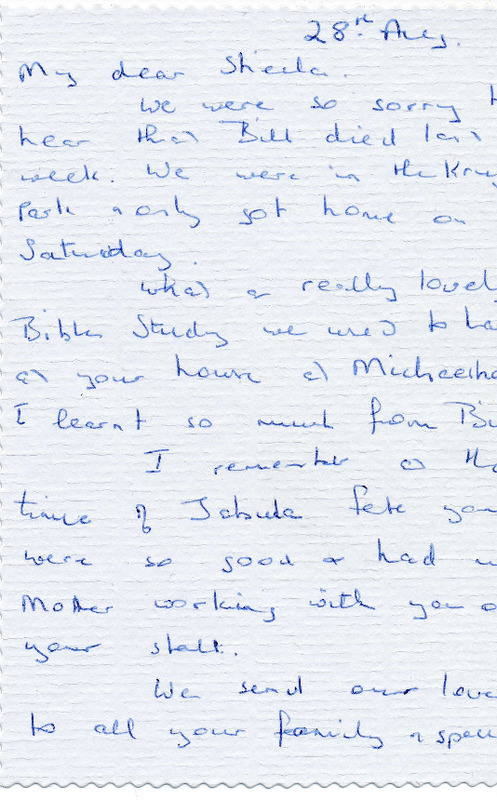 28th Aug.
My dear Sheila.
We were so sorry t
hear that Bill died last
week. We were in the Kru
Park & only got home on
Saturday.
What a really lovel
Bible Study we used to ha
at your house at Michaelho
I learnt so much from Bi
I remember at the
time of Jabula fete you
were so good & had m
Mother working with you o
your stall.
We send our love
to all your family & spec